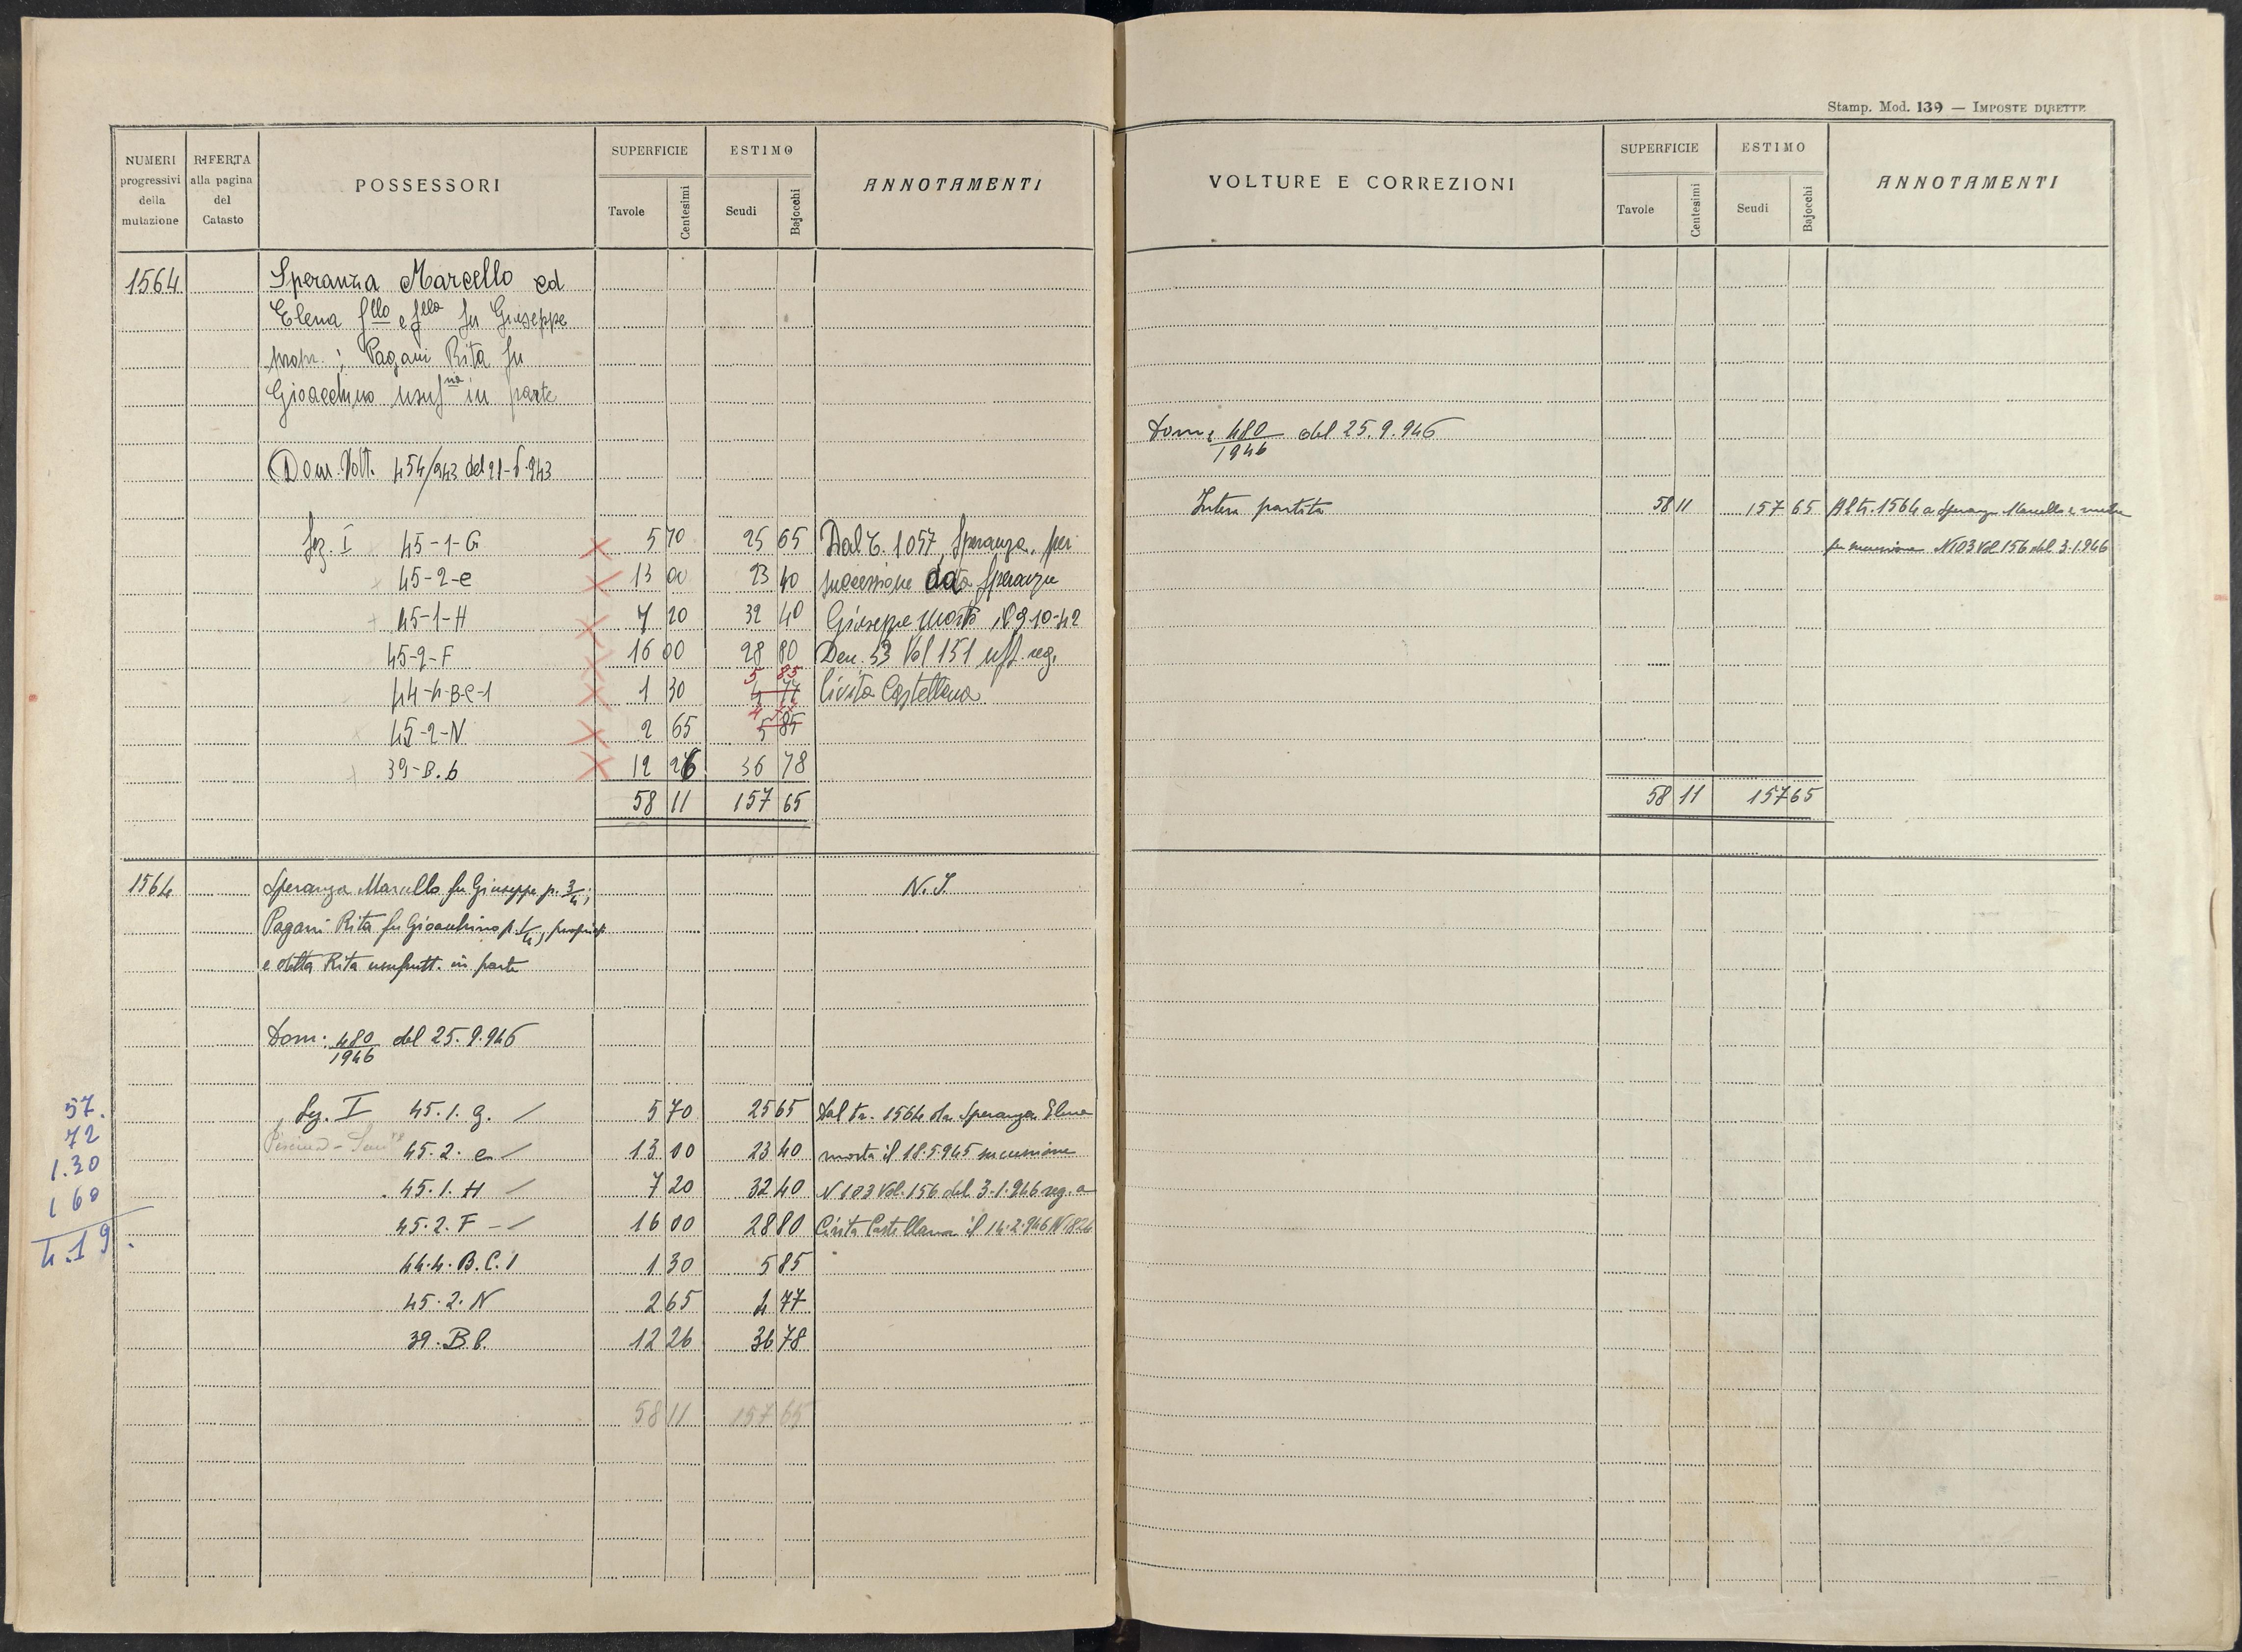 Stamp. Mod. 139 — IMPOSTE DIRETTE
NUMERI progressivi della mutazione
RIFERTA alla pagina del Catasto
POSSESSORI
SUPERFICIE
Tavole Centesimi
ESTIMO
Scudi Bajocchi
ANNOTAMENTI
1564 Speranza Marcello ed
Elena f.llo e f.lla fu Giuseppe
propr.; Pagani Rita fu
Gioacchino usuf.na in parte
Dom. Volt. 454/943 del 21-6-943
Sez. I 45-1-G 5 70 25 65 Dal T. 1057, Speranza, per
45-2-e 13 00 23 40 successione da Speranza
45-1-H 7 20 32 40 Giuseppe morto il 9-10-42
45-2-F 16 00 28 80 Den. 53 Vol 151 uff. reg.
5 85
44-4-B-C-1 1 30 4 77 Civita Castellana
4 77
45-2-N 2 65 5 85
39-B.b 12 26 36 78
58 11 157 65
1564 Speranza Marcello fu Giuseppe p. 3/4; N. I.
Pagani Rita fu Gioacchino p. 1/4, propriet
e detta Rita usufrutt. in parte
Dom: 480/1946 del 25.9.946
Sez. I 45.1.g. 5 70 25 65 Dal tr. 1564 da Speranza Elena
45.2.e 13 00 23 40 morta il 18.5.945 successione
45.1.H 7 20 32 40 N 103 Vol. 156 del 3.1.946 reg. a
45.2.F 16 00 28 80 Civita Castellana il 14.2.946 N. 824
44.4.B.C.1 1 30 5 85
45.2.N 2 65 4 77
39.B.b. 12 26 36 78
58 11 157 65
57.
72
1.30
1 60
4.19.
VOLTURE E CORREZIONI
SUPERFICIE
Tavole Centesimi
ESTIMO
Scudi Bajocchi
ANNOTAMENTI
Dom: 480/1946 del 25.9.946
Intera partita 58 11 157 65 Al tr. 1564 a Speranza Marcello e madre
per successione N 103 Vol 156 del 3.1.946
58 11 157 65